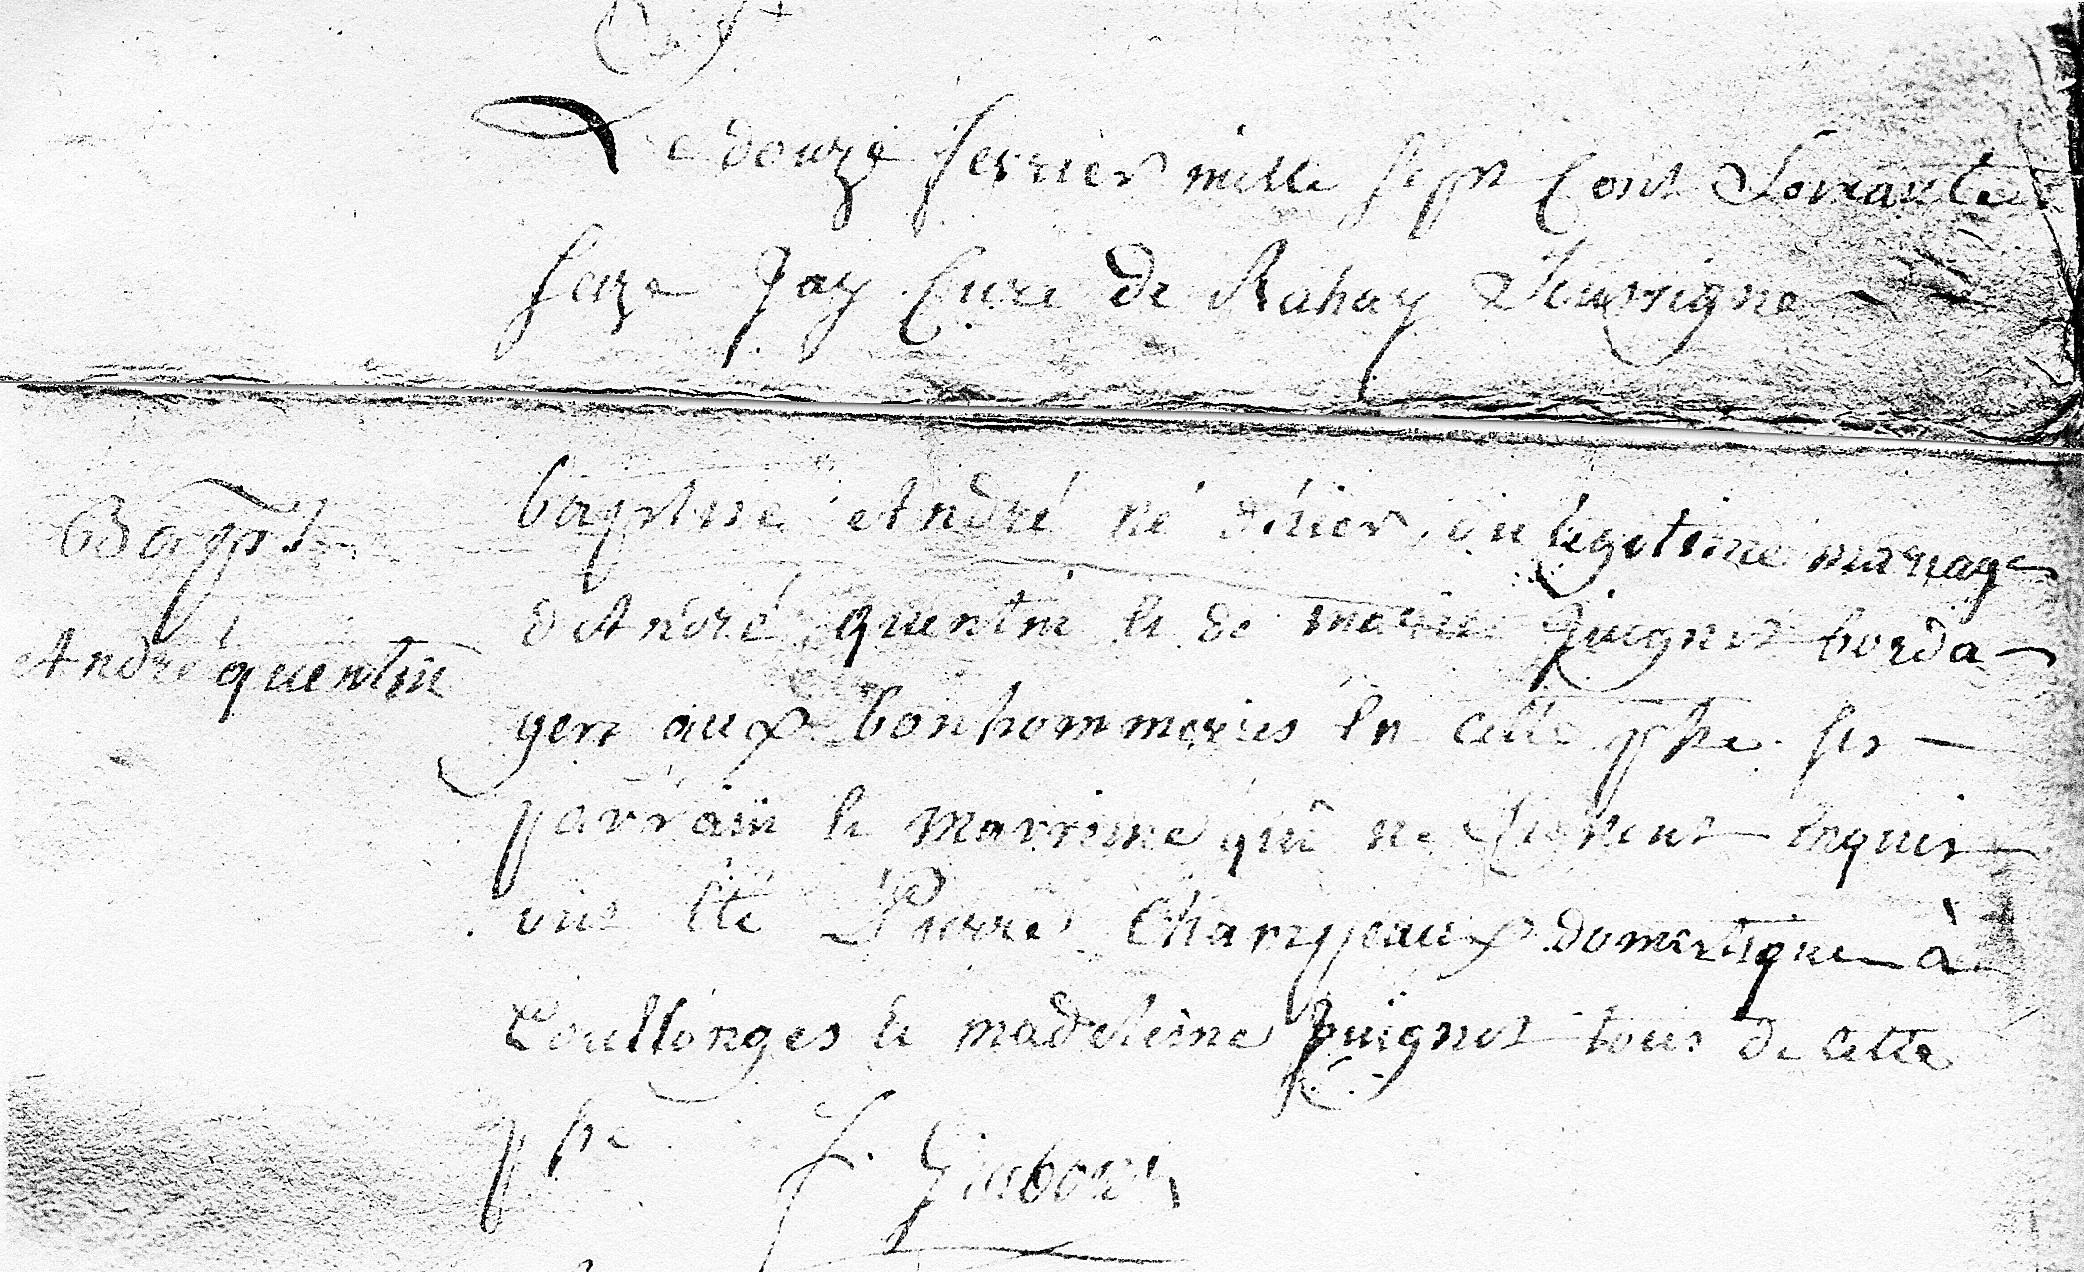 Le douze fevrier mille sept Cent Soixante
Seize Jay Curé de Rahay Soussigné
Bapt.
baptisé André né d'hier du légitime mariage
André quentin
d'André quentin & de marie Juignet borda-
gers aux bonhommeries en cette psse ses -
parrain & marrine qui ne signent enquis
ont été Pierre Champeaux domestique à
Coullonges & madeleine Juignet tous de cette
psse